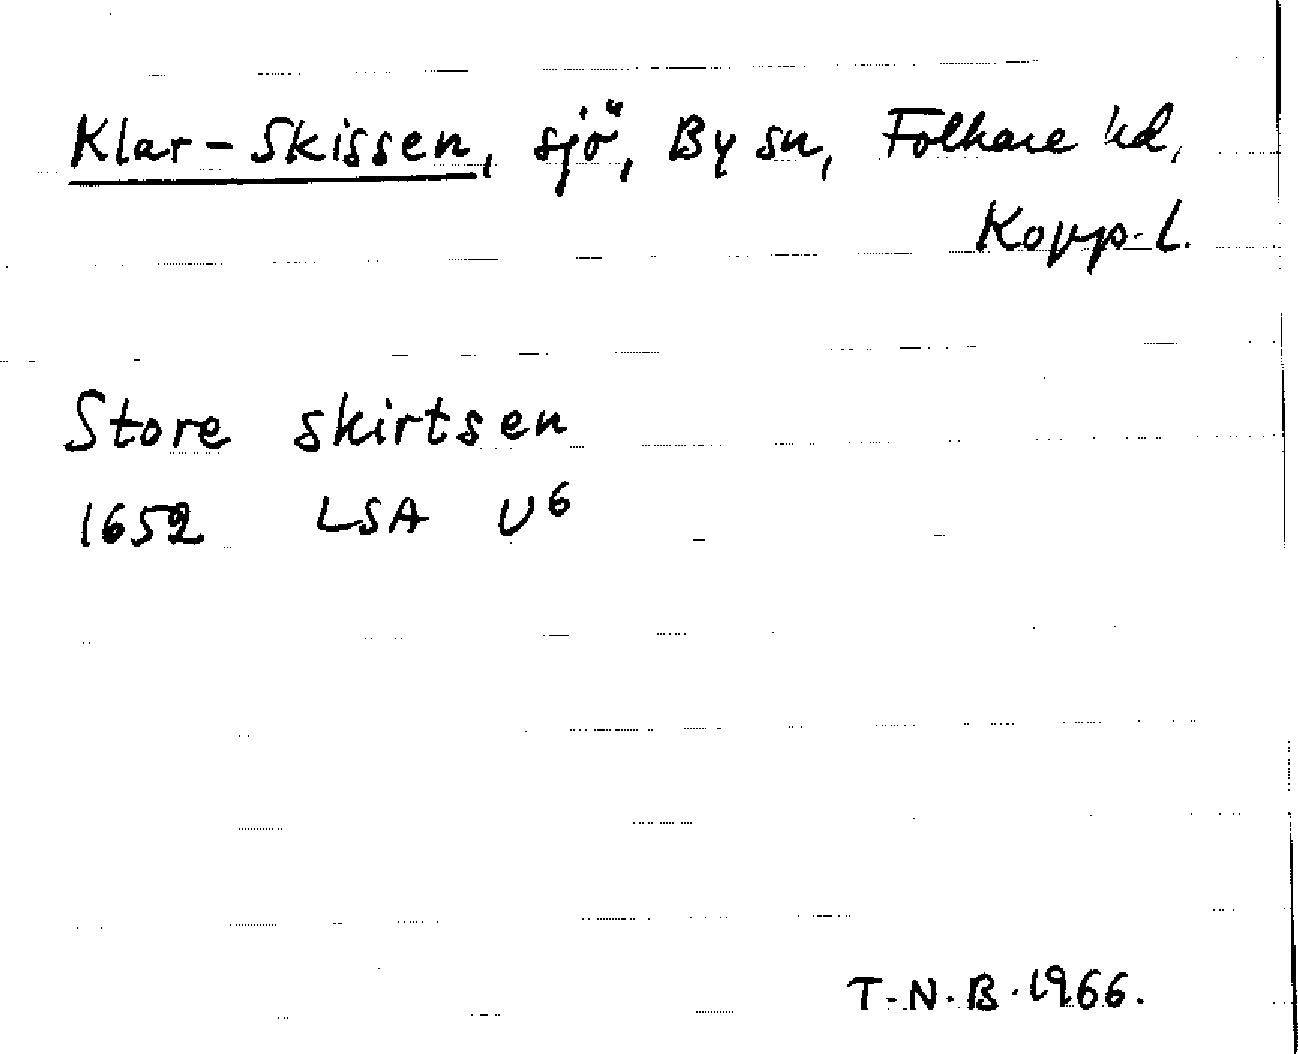 Klar-Skissen, sjö, By sn, Folkare hd,
Kopp. l.
Store skirtsen
1652 LSA U6
T.N.B. 1966.